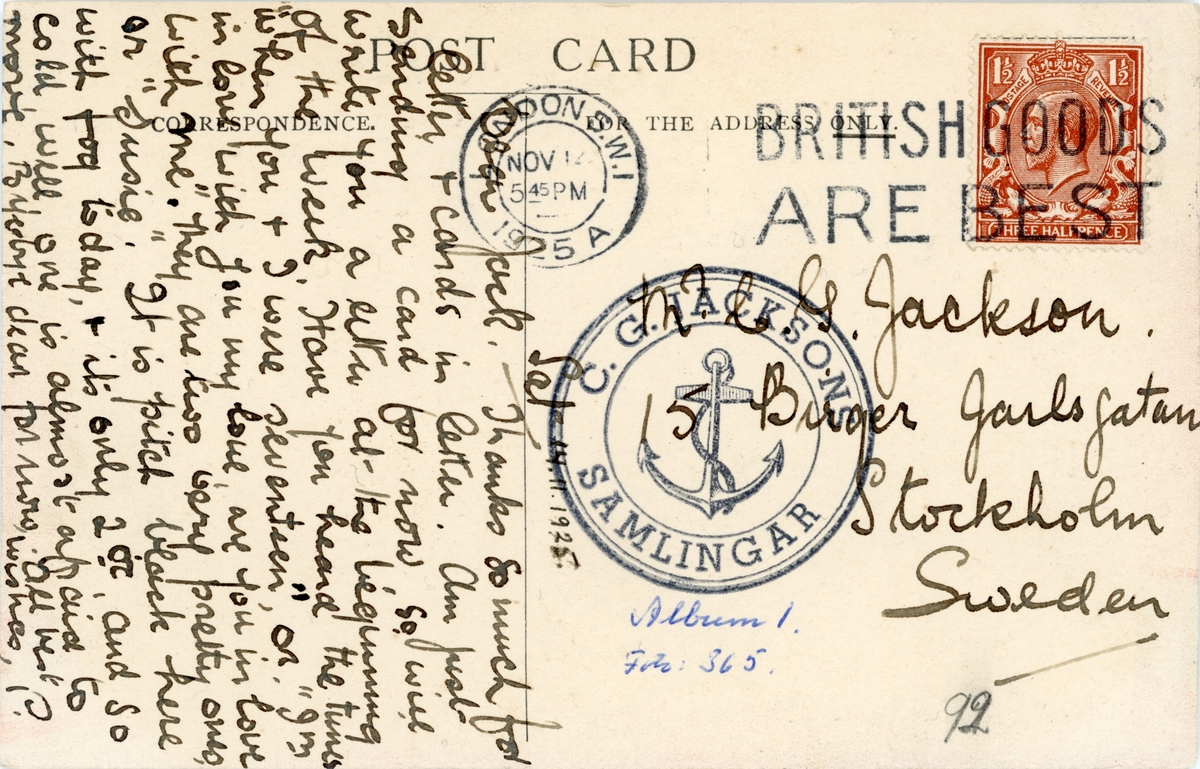 POST CARD
CORRESPONDENCE.
FOR THE ADDRESS ONLY.
LONDON. S.W.1
NOV 12
5 45 PM
1925 A
BRITISH GOODS
ARE BEST
1½ 1½
POSTAGE REVENUE
THREE HALFPENCE
Mr. C. G. Jackson.
15 Birger Jarlsgatan
Stockholm
Sweden
C. G. JACKSONS
SAMLINGAR
Album 1.
Foto: 365.
92
Sat 14.11.1925.
Dear Jack. Thanks so much for
letter & cards in letter. Am just
sending a card for now, so will
write you a letter at the beginning
of the week. Have you heard the tunes
"When you & I were seventeen," or "I'm
in love with you my love, are you in love
with me." They are two very pretty ones,
or "Susie." It is pitch black here
with fog today, & it's only 2 oc. and so
cold, well one is almost afraid to
move. Bye bye dear for now, all best
wishes, P.